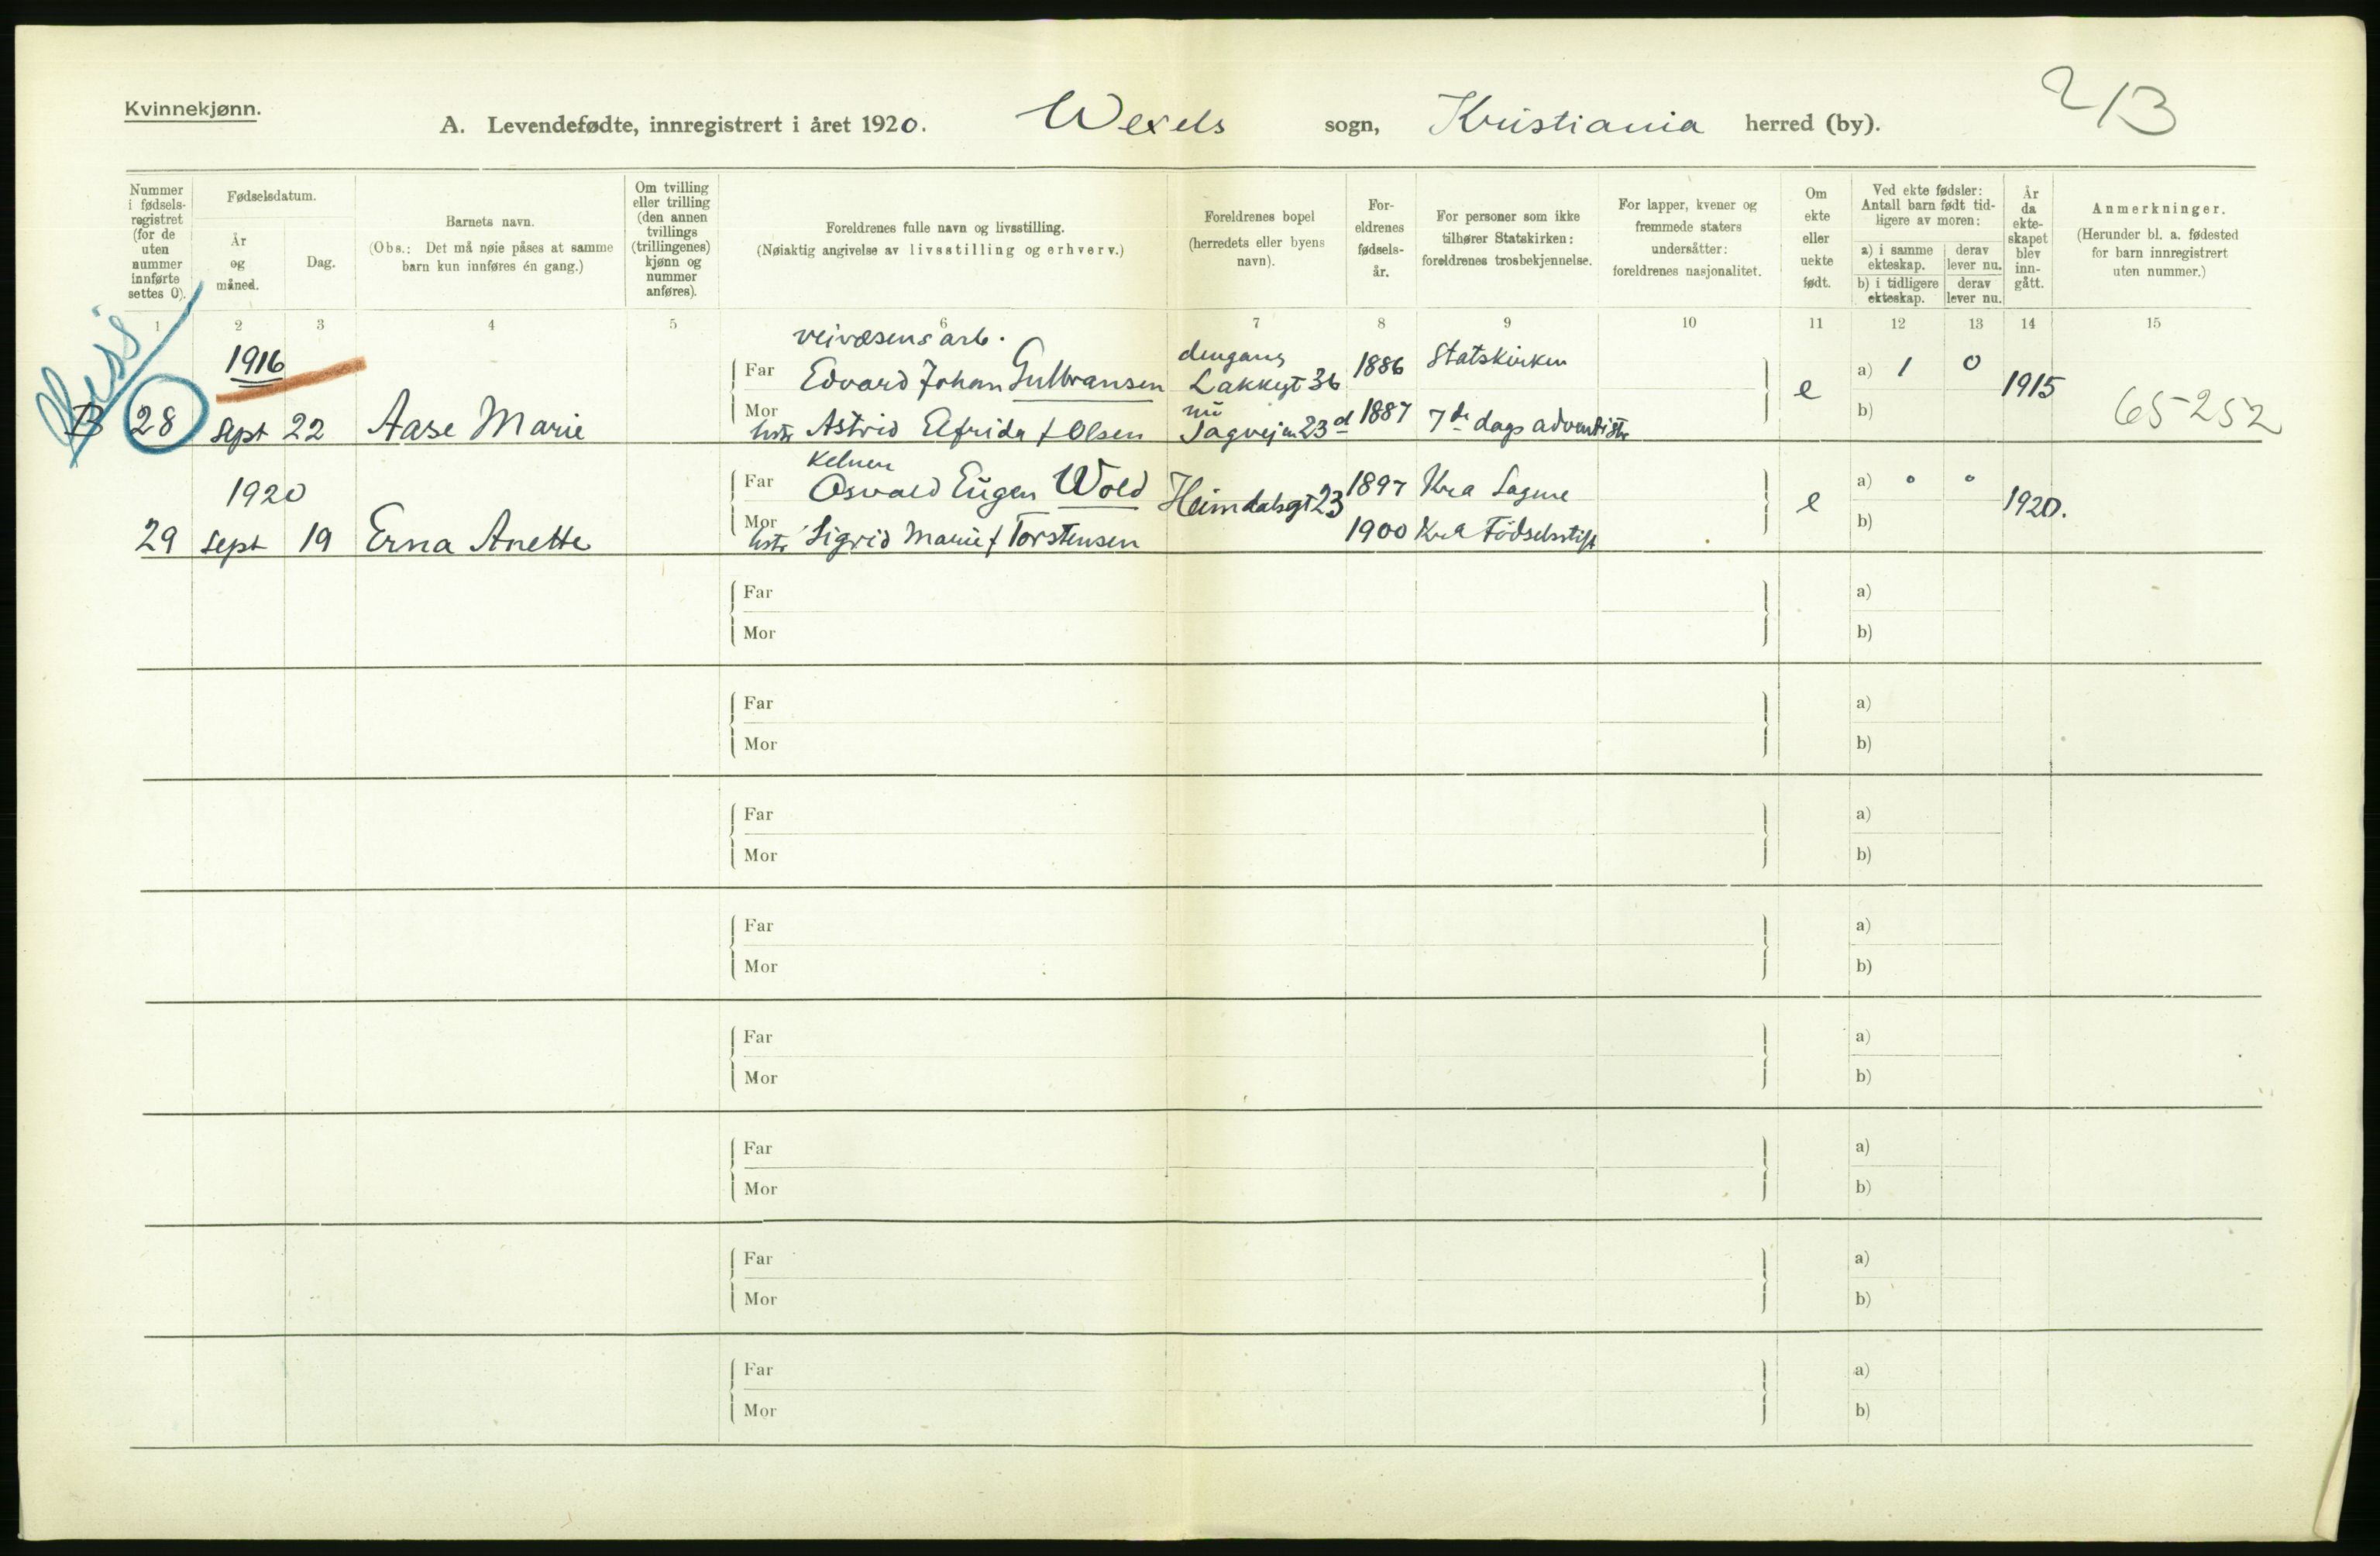 Kvinnekjønn.
A. Levendefødte, innregistrert i året 1920. Wexels sogn, Kristiania herred (by).
213
Nummer i fødsels-registret (for de uten nummer innførte settes 0).
Fødselsdatum.
År og måned.
Dag.
Barnets navn.
(Obs.: Det må nøie påses at samme barn kun innføres én gang.)
Om tvilling eller trilling (den annen tvillings (trillingenes) kjønn og nummer anføres).
Foreldrenes fulle navn og livsstilling.
(Nøiaktig angivelse av livsstilling og erhverv.)
Foreldrenes bopel (herredets eller byens navn).
For-eldrenes fødsels-år.
For personer som ikke tilhører Statskirken: foreldrenes trosbekjennelse.
For lapper, kvener og fremmede staters undersåtter: foreldrenes nasjonalitet.
Om ekte eller uekte født.
Ved ekte fødsler: Antall barn født tid-ligere av moren:
a) i samme ekteskap.
derav lever nu.
b) i tidligere ekteskap.
derav lever nu.
År da ekte-skapet blev inn-gått.
Anmerkninger.
(Herunder bl. a. fødested for barn innregistrert uten nummer.)
1 2 3 4 5 6 7 8 9 10 11 12 13 14 15
veivæsensarb.
1916 Far Edvard Johan Gulbransen dengang Lakkegt 36 1886 Statskirken e a) 1 0 1915
B 28 Sept 22 Aase Marie Mor hstr Astrid Elfrida f Olsen nu Sagvejen 23 d 1887 7de dags adventister b) 65252
Kelner
1920 Far Osvald Eugen Wold Heimdalsgt 23 1897 Kra Sagene e a) 0 0 1920.
29 Sept 19 Erna Anette Mor hstr Sigrid Marie f Torstensen 1900 Kra Födselsstift b)
Far a)
Mor b)
Far a)
Mor b)
Far a)
Mor b)
Far a)
Mor b)
Far a)
Mor b)
Far a)
Mor b)
Far a)
Mor b)
Far a)
Mor b)